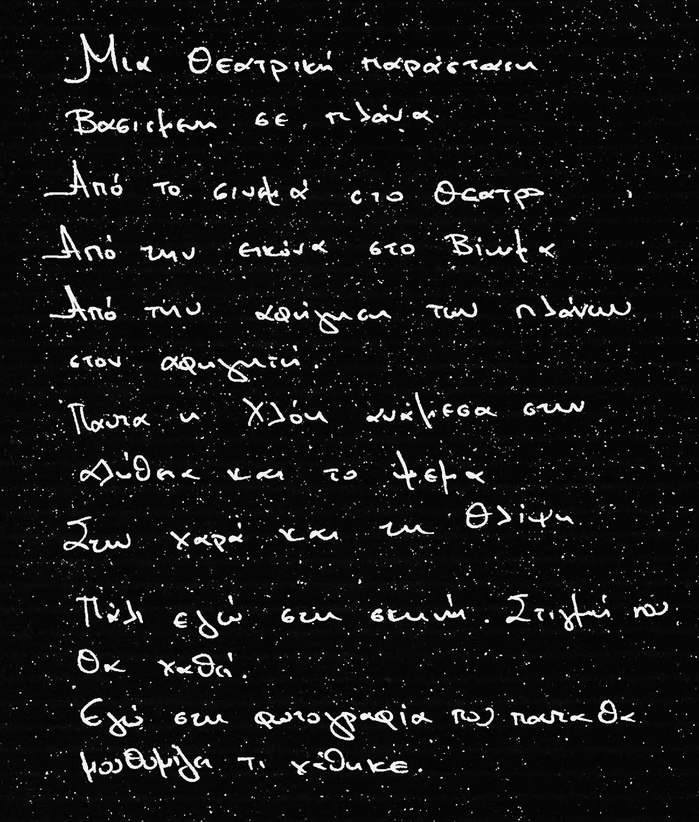 Μια Θεατρική παράσταση
Βασισμένη σε πλάνα.
Από το σινεμά στο Θέατρο
Από την εικόνα στο Βίωμα
Από την αφήγηση των πλάνων
στον αφηγητή.
Παντα η Χλόη ανάμεσα στην
Αλήθεια και το ψεμα
Στην χαρά και τη Θλίψη
Πάλι εγώ στη σκηνή. Στιγμή που
Θα χαθεί.
Εγώ στη φωτογραφία που παντα Θα
μου θυμίζει τι χάθηκε.